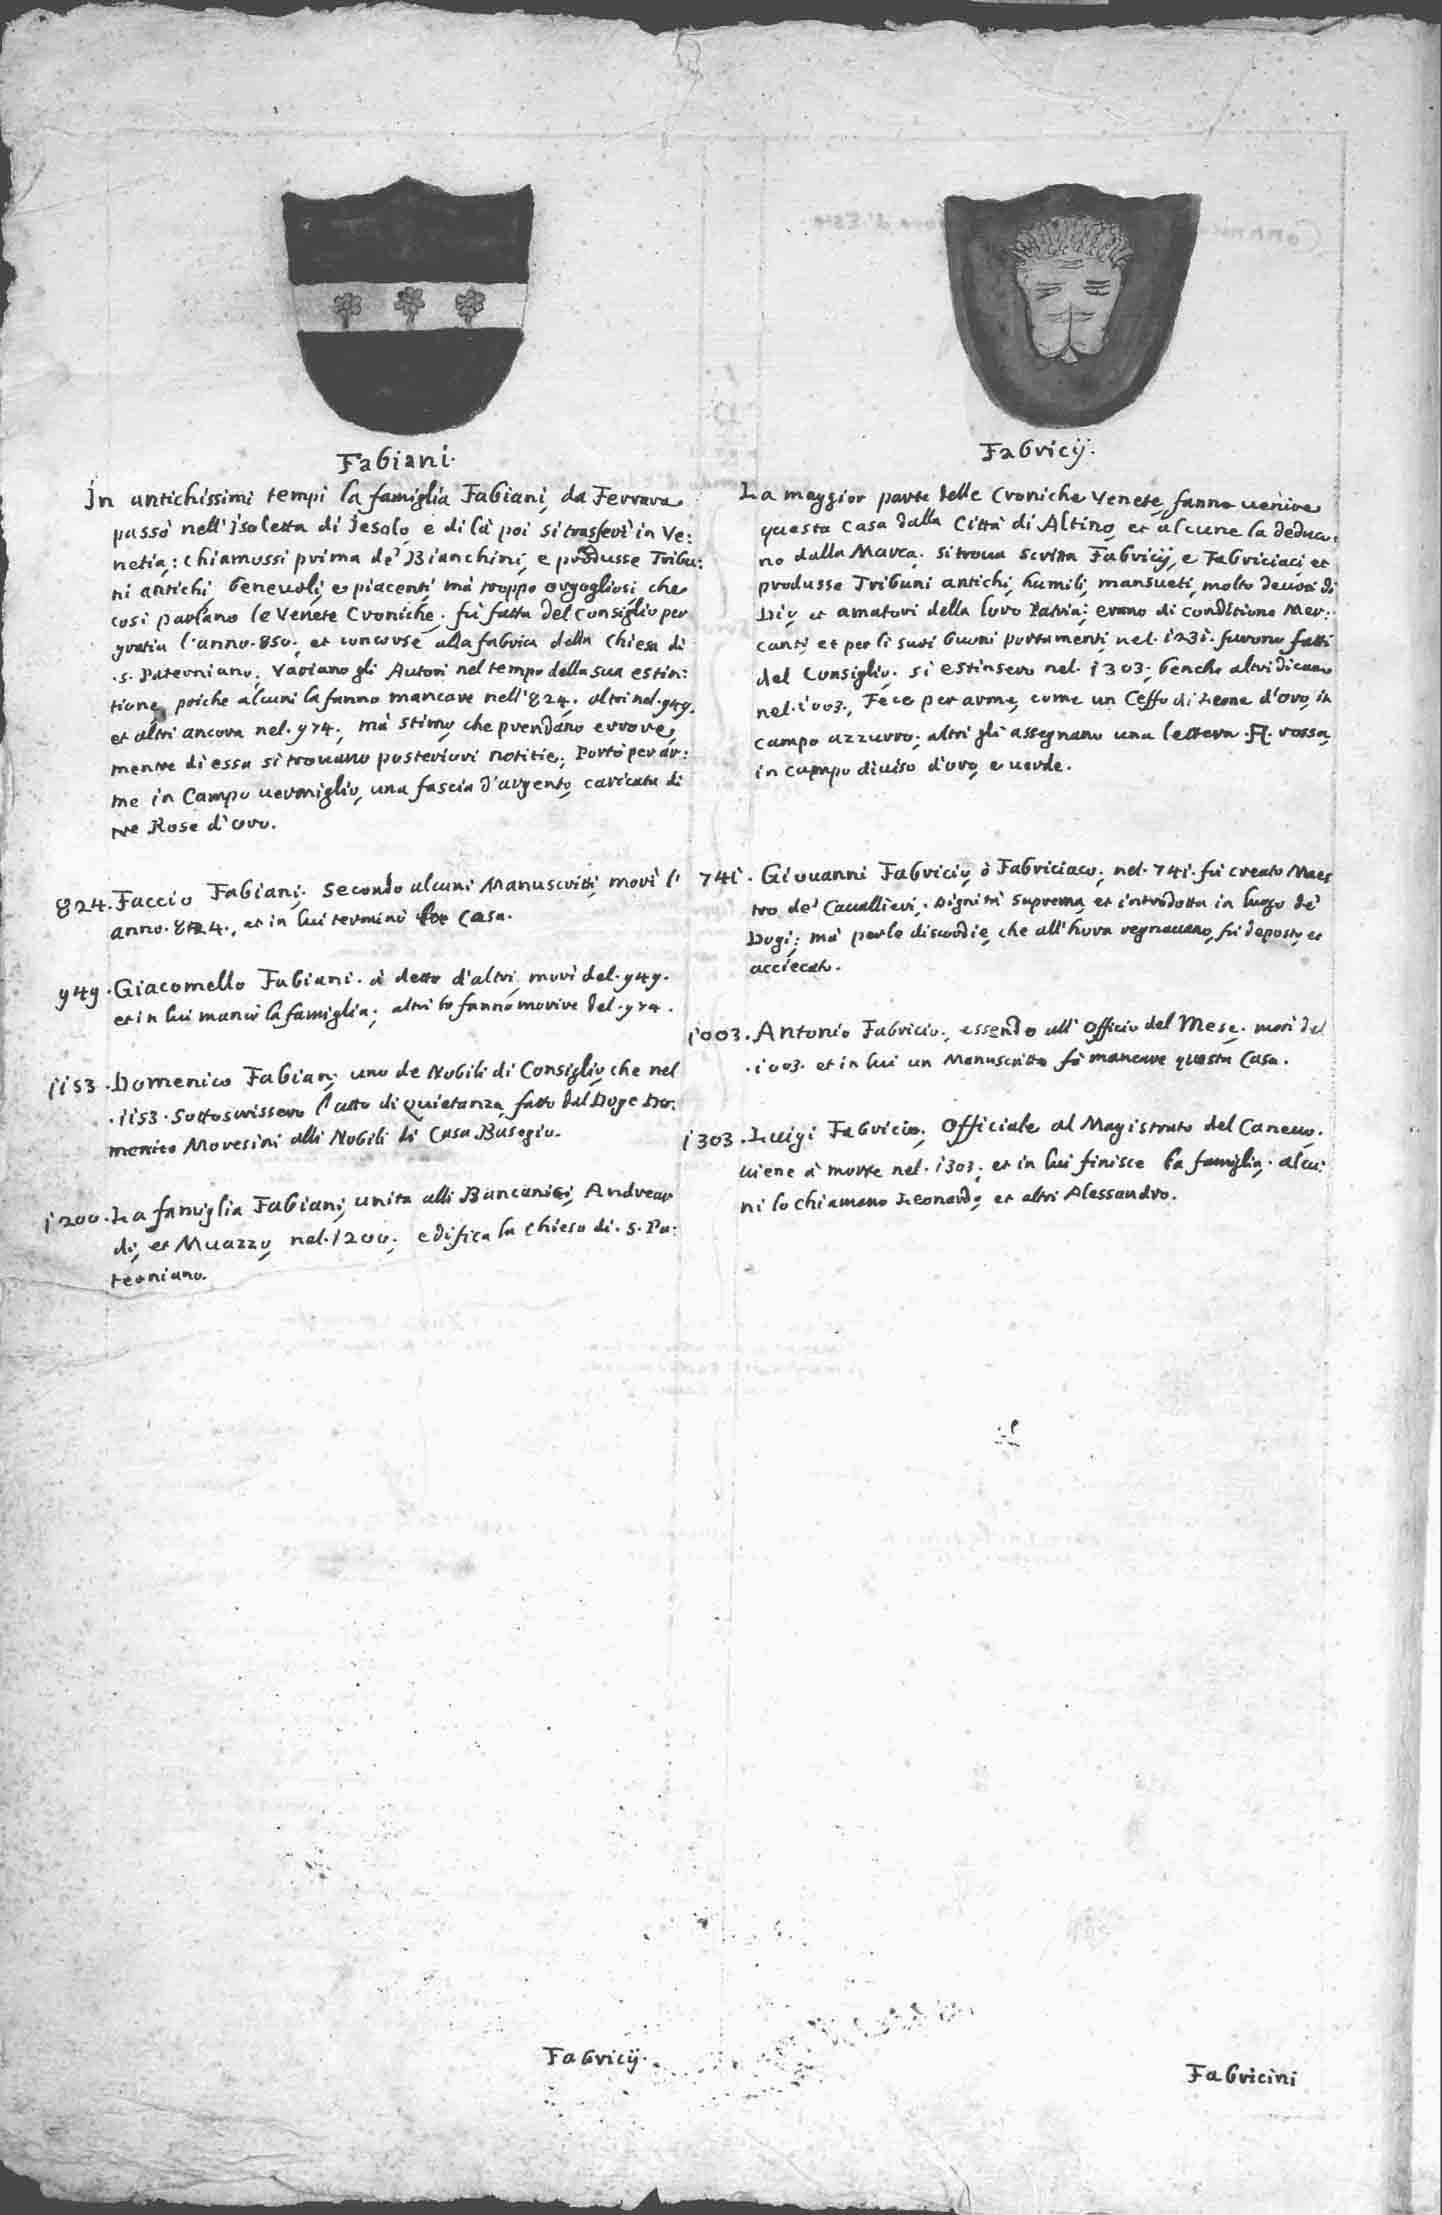 Fabiani.
In antichissimi tempi la famiglia Fabiani, da Ferrara
passò nell'Isoletta di Jesolo, e di là poi si trasferì in Ve:
netia; chiamossi prima de' Bianchini, e produsse Tribu:
ni antichi, benevoli, e piacenti, mà troppo orgogliosi, che
così parlano le Venete Croniche. fù fatta del Consiglio per
gratia l'anno. 850. et concorse alla fabrica della Chiesa di
.S. Paterniano. Variano gli Autori nel tempo della sua estin:
tione, poiche alcuni la fanno mancare nell'824. altri nel. 949.
et altri ancora nel. 974., mà stimo, che prendano errore,
mentre di essa si trouano posteriori notitie. Portò per ar:
me in Campo uermiglio, una fascia d'argento, caricata di
tre Rose d'oro.
824. Faccio Fabiani; secondo alcuni Manuscritti, morì l'
anno. 824., et in lui terminò la Casa.
949. Giacomello Fabiani. à detto d'altri, morì del. 949.
et in lui mancò la famiglia; altri lo fanno morire del. 974.
1153. Domenico Fabian; uno de Nobili di Consiglio, che nel
.1153. sottoscrissero l'atto di Quietanza, fatto dal Doge Do:
menico Moresini alli Nobili di Casa Basegio.
1200. La famiglia Fabiani, unita alli Bancanigi, Andrear
di, et Muazzo, nel. 1200. edifica la Chiesa di. S. Pa:
terniano.
Fabricij.
Fabricij.
La maggior parte delle Croniche Venete, fanno uenire
questa Casa dalla Città di Altino, et alcune la deduco:
no dalla Marca. Si troua scritta Fabricij, e Fabriciaci et
produsse Tribuni antichi, humili, mansueti, molto deuoti di
Dio, et amatori della loro Patria; erano di conditione Mer:
canti, et per li suoi buoni portamenti, nel. 1231. furono fatti
del Consiglio. si estinsero nel. 1303. benche altri dicano
nel. 1003., Fece per arme, come un Ceffo di Leone d'oro, in
campo azzurro; altri gli assegnano una lettera .A. rossa,
in campo diuiso d'oro, e uerde.
741. Giouanni Fabricio, ò Fabriciaco, nel. 741. fù creato Maes
tro de' Cauallieri, Dignità suprema, et introdotta in luogo de'
Dogi; mà per le discordie, che all'hora regnauano, fù deposto, et
acciecato.
1003. Antonio Fabricio, essendo all'Officio del Mese, morì del
.1003. et in lui un Manuscritto fà mancare questa Casa.
1303. Luigi Fabricio, Officiale al Magistrato del Caneuo,
uiene à morte nel. 1303. et in lui finisce la famiglia. alcu:
ni lo chiamano Leonardo, et altri Alessandro.
Fabricini